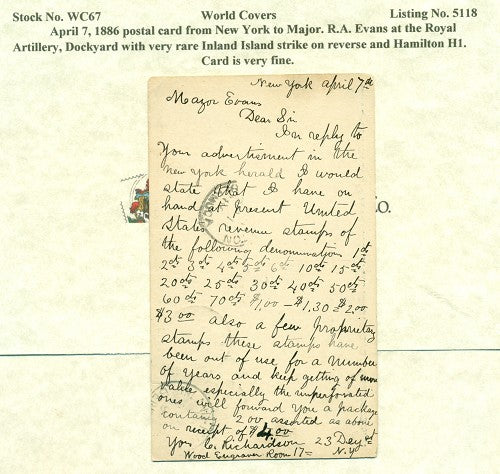 Stock No. WC67 World Covers Listing No. 5118
April 7, 1886 postal card from New York to Major. R.A. Evans at the Royal
Artillery, Dockyard with very rare Inland Island strike on reverse and Hamilton H1.
Card is very fine.
New York april 7th
Major Evans
Dear Sir
In reply to
Your advertisment in the
new york herald I would
state that I have on
hand at present United
States revenue stamps of
the following denominations 1ct
2cts 3cts 4cts 5cts 6cts 10cts 15cts
20cts 25cts 30cts 40cts 50cts
60cts 70cts $1,00 – $1,30 = $2,00
$3 00 also a few Propriety
stamps these stamps have
been out of use for a number
of Years and keep getting of more
value especially the unperforated
ones will forward you a package
containg 200 assorted as above
on receipt of $4 00
You C. Richardson 23 Dey st
Wood Engraver Room 17 = N.Y
O.